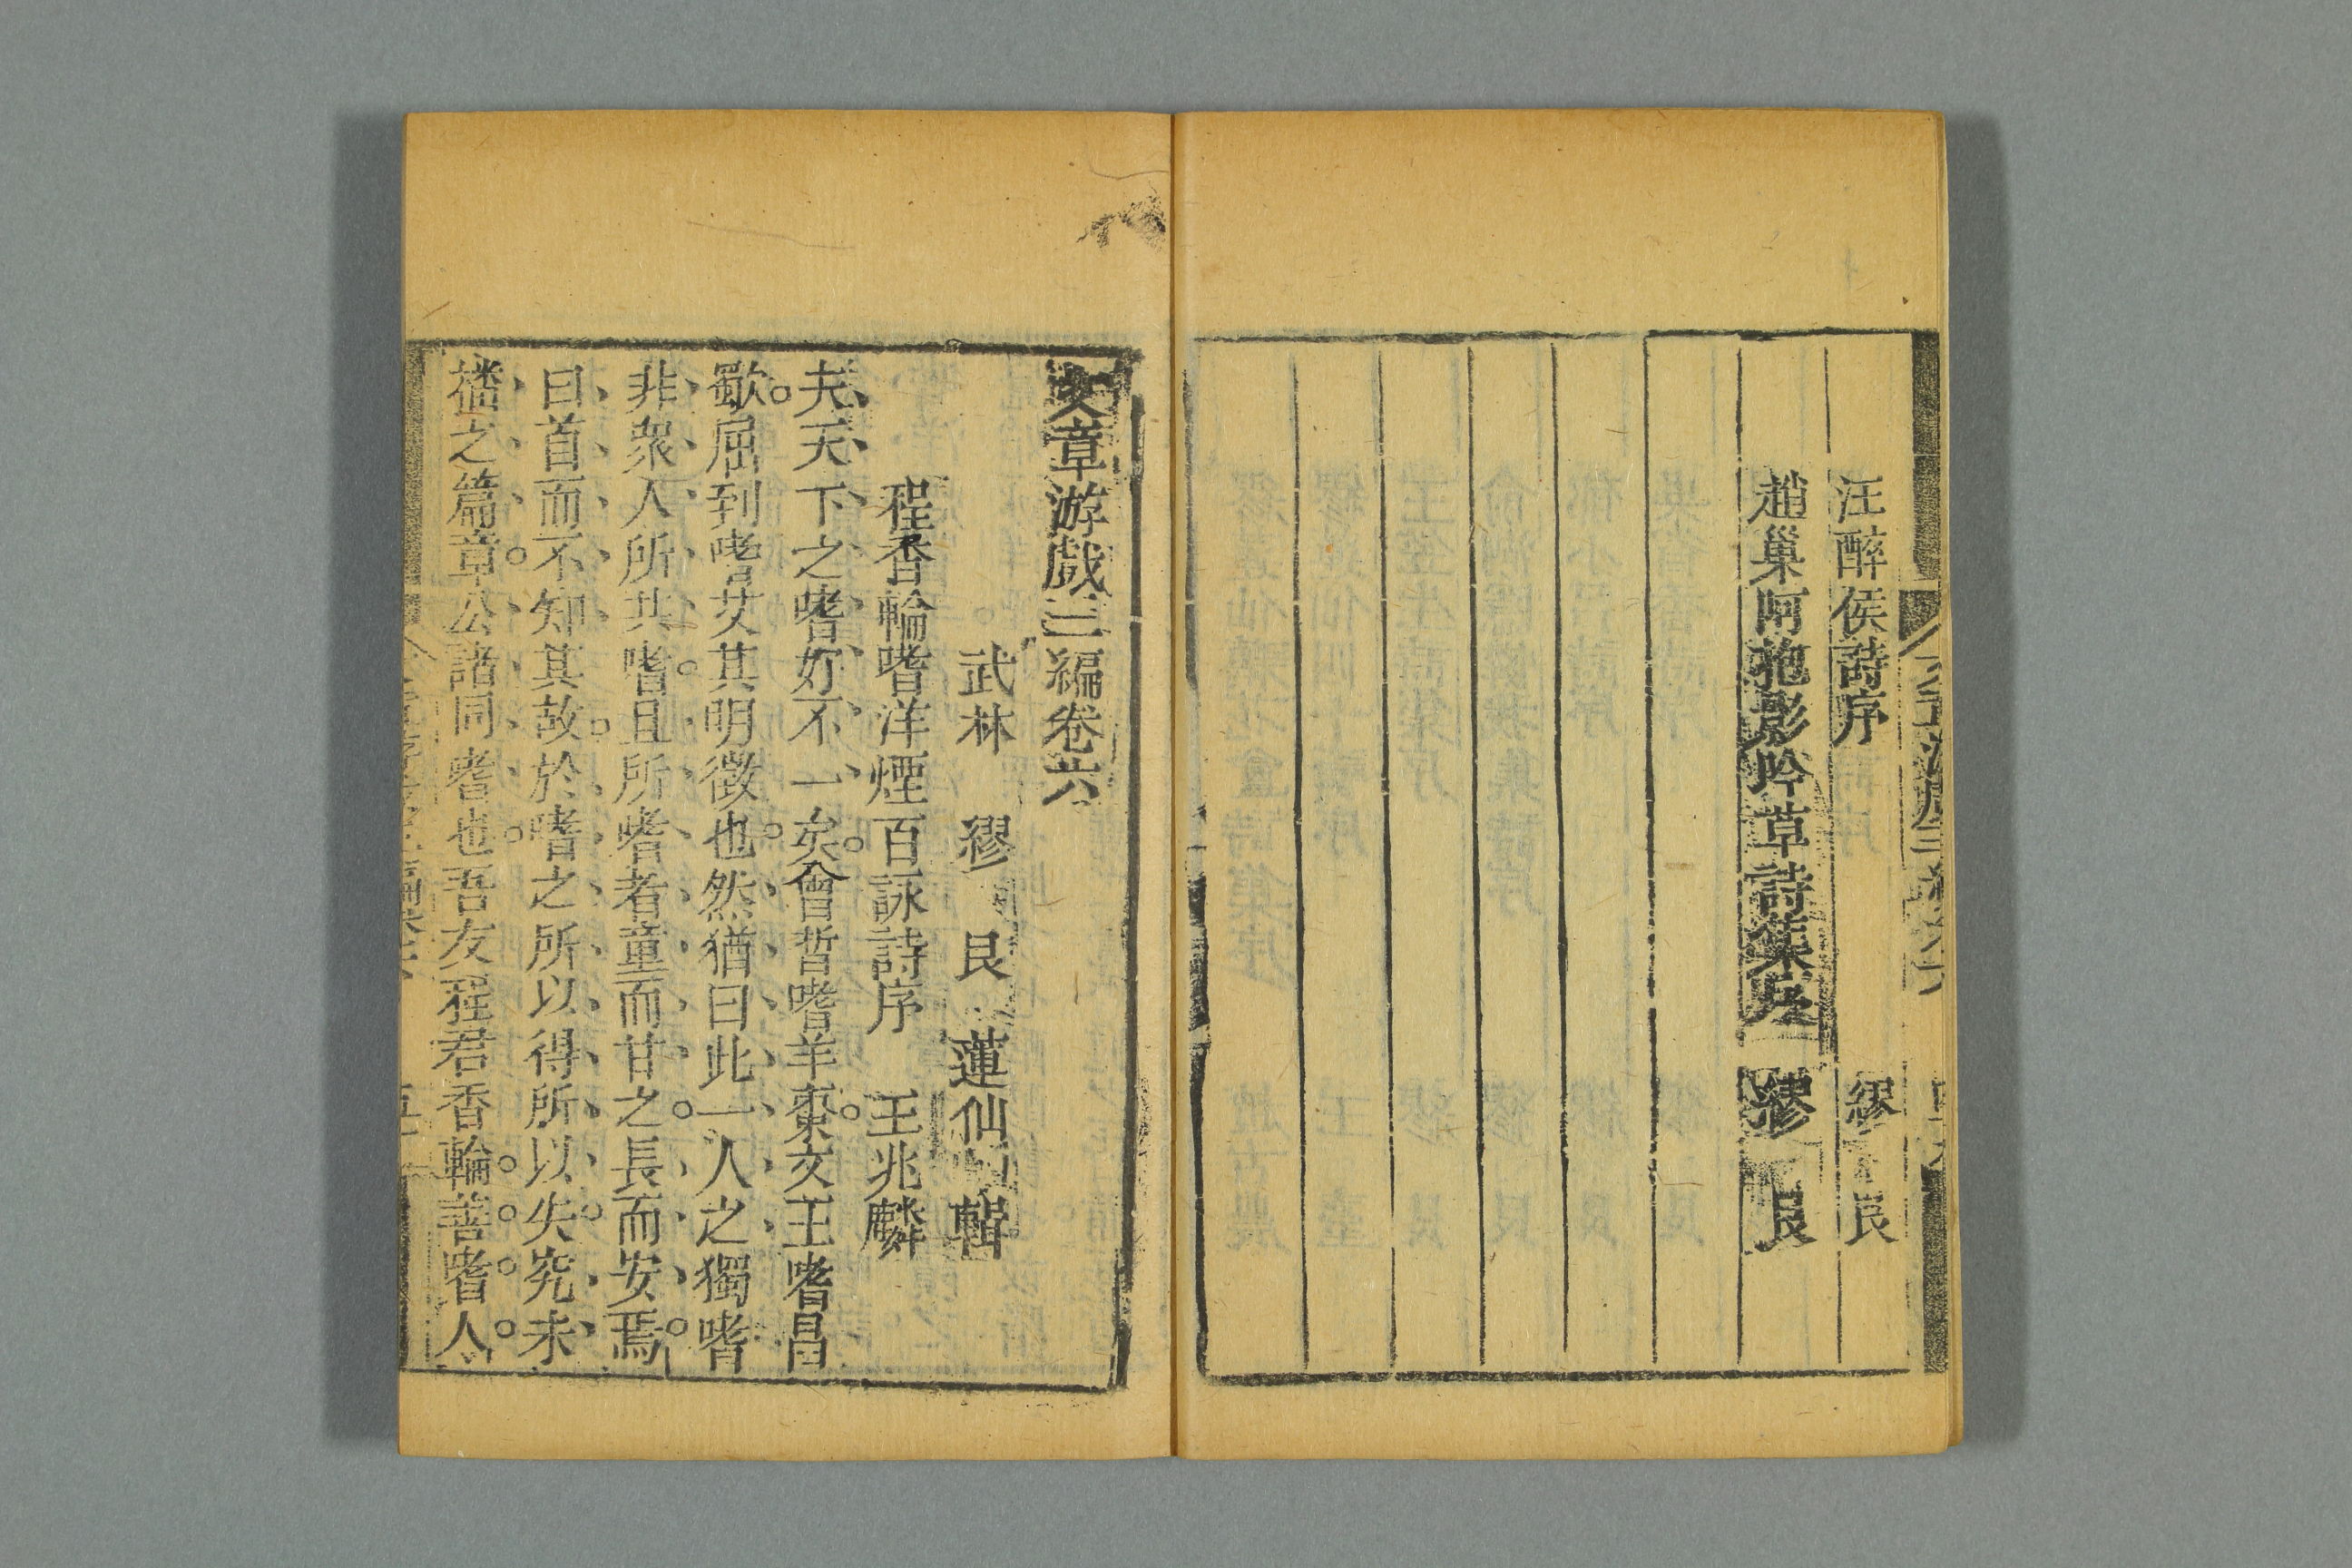 汪醉侯詩序 繆 艮
趙巢阿抱影吟草詩集序 繆 艮
文章游戲三編卷六
武林 繆 艮 蓮仙 輯
程香輪嗜洋煙百詠詩序 王兆麟
夫天下之嗜好不一矣會晳嗜羊棗文王嗜昌
歜屈到嗜芰其明徵也然猶曰此一人之獨嗜
非衆人所共嗜且所嗜者童而甘之長而安焉
曰首而不知其故於嗜之所以得所以失究未
之篇章公諸同嗜也吾友程君香輪善嗜人